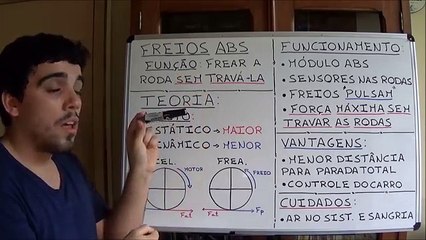 FREIOS ABS
FUNÇÃO: FREAR A
RODA SEM TRAVÁ-LA
TEORIA:
ESTÁTICO → MAIOR
DINÂMICO → MENOR
FREA.
MOTOR
FREIO
Fat
Fat
Fp
FUNCIONAMENTO:
• MÓDULO ABS
• SENSORES NAS RODAS
• FREIOS "PULSAM"
• FORÇA MÁXIMA SEM
TRAVAR AS RODAS
VANTAGENS:
• MENOR DISTÂNCIA
PARA PARADA TOTAL
• CONTROLE DO CARRO
CUIDADOS:
• AR NO SIST. E SANGRIA